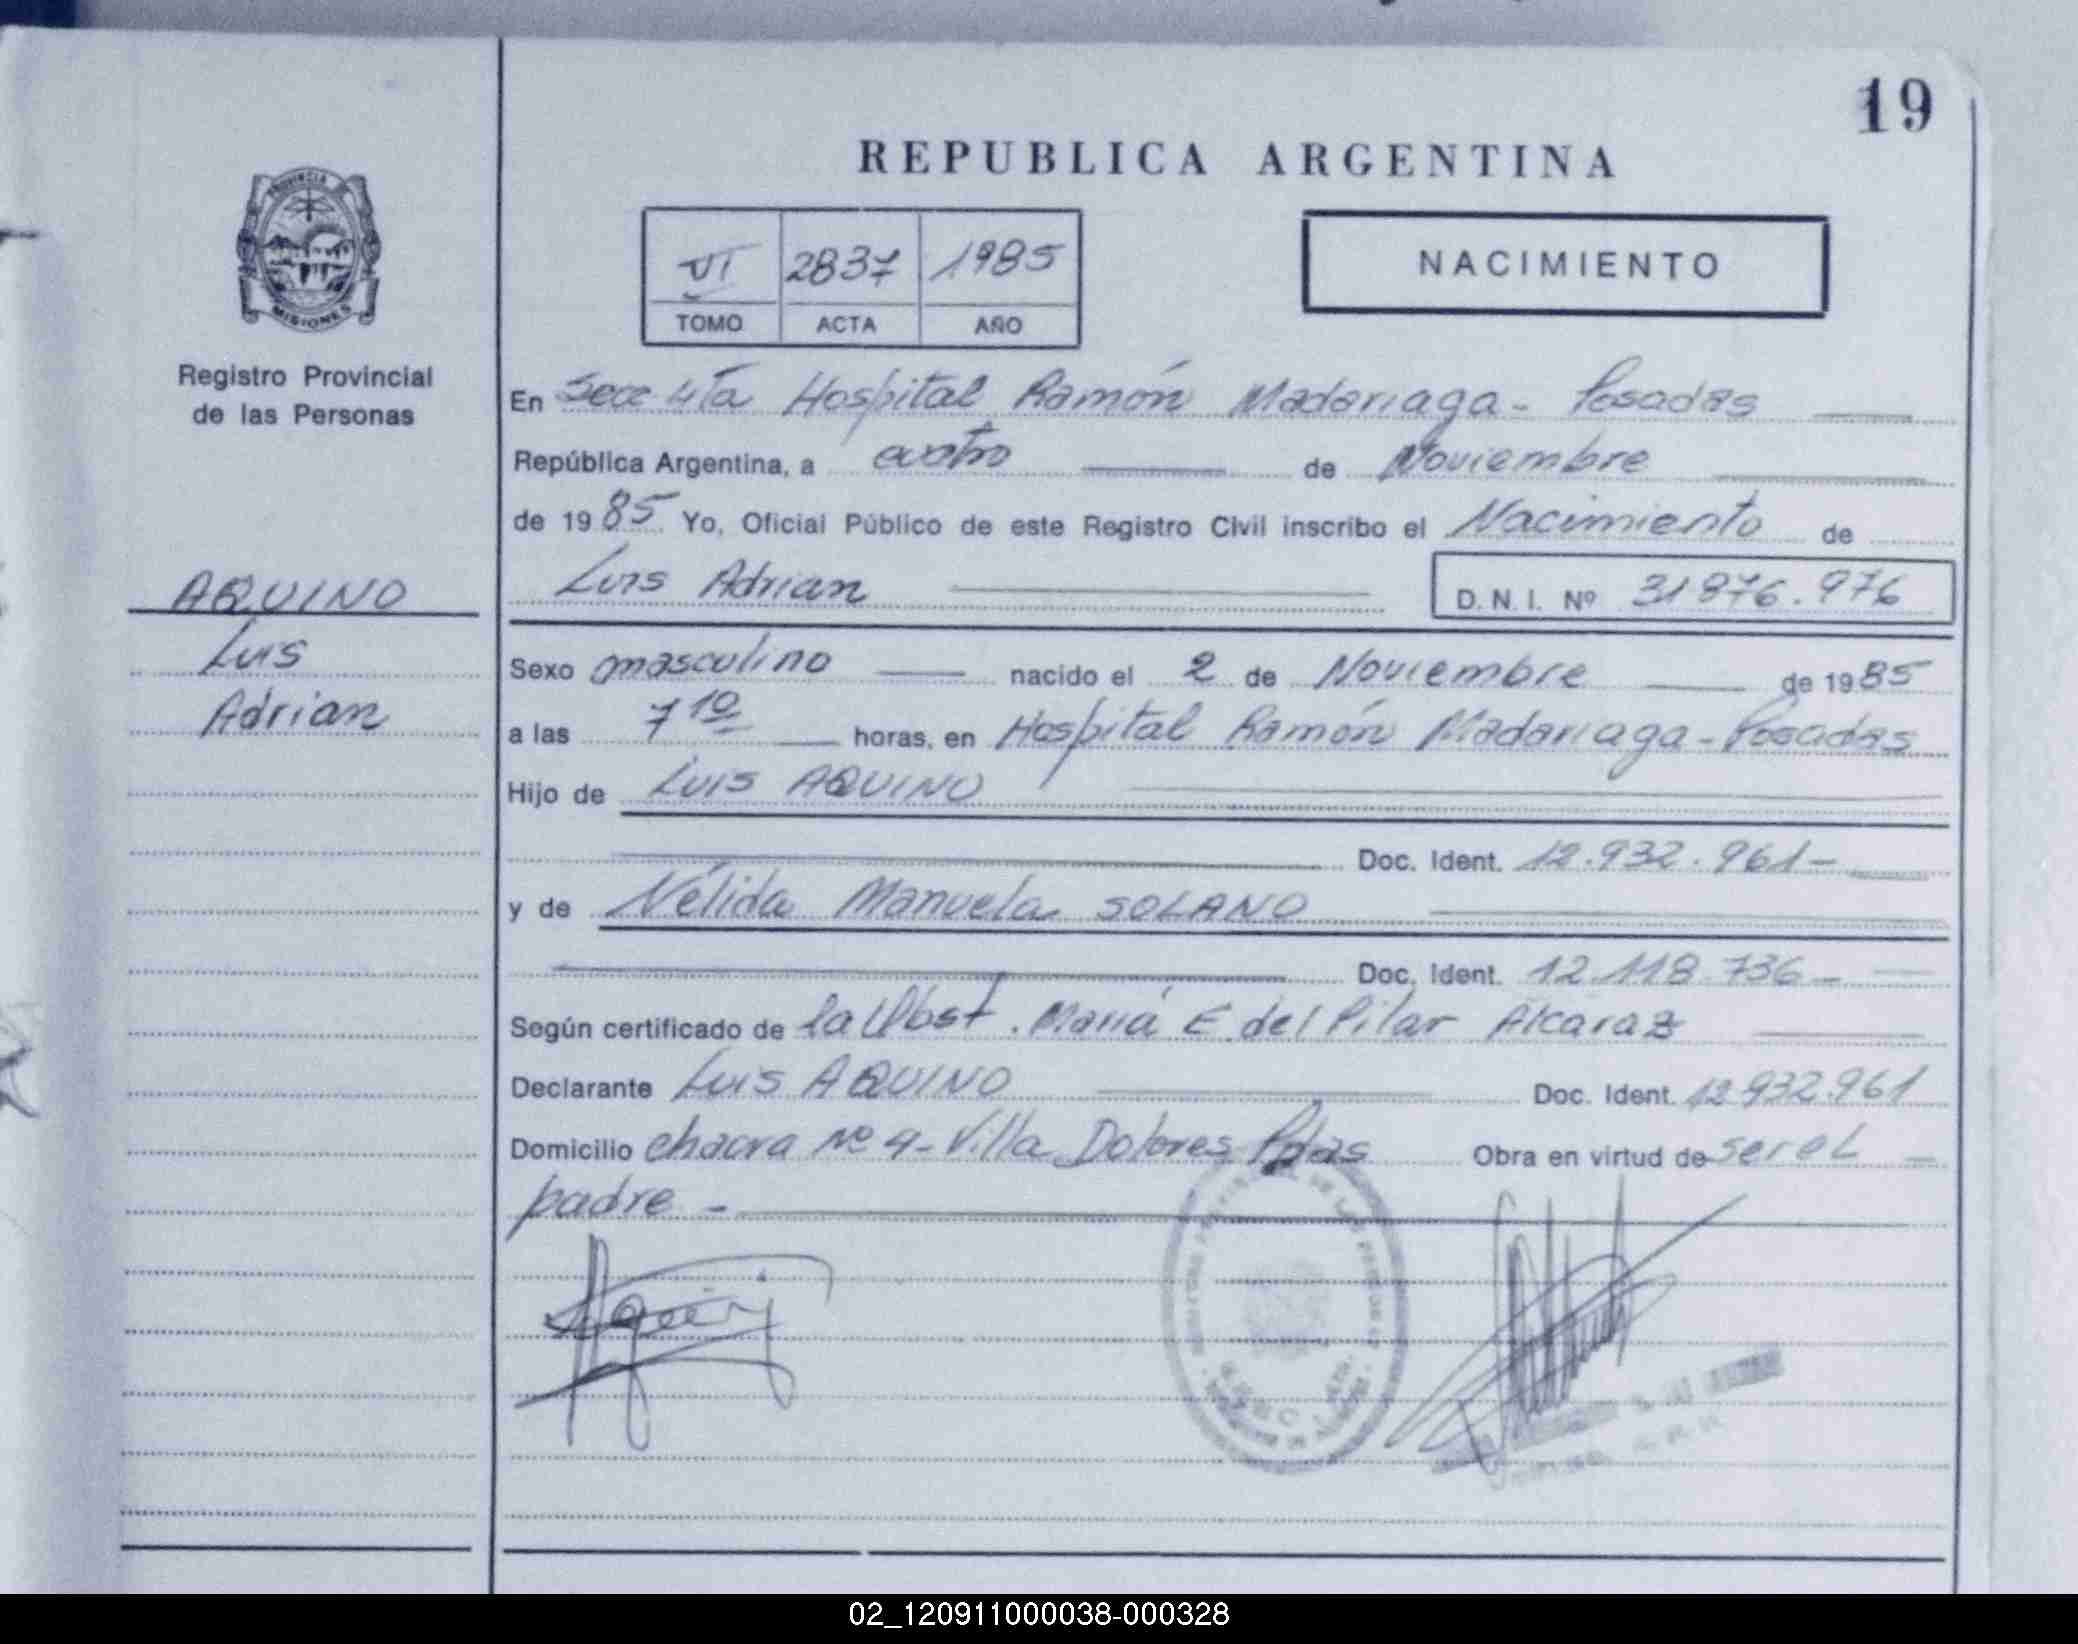 19
REPUBLICA ARGENTINA
PROVINCIA
MISIONES
Registro Provincial
de las Personas
VI 2837 1985
TOMO ACTA AÑO
NACIMIENTO
En Secc 4ta Hospital Ramón Madariaga - Posadas
República Argentina, a cuatro de Noviembre
de 1985 Yo, Oficial Público de este Registro Civil inscribo el Nacimiento de
Luis Adrian D. N. I. Nº 31876.976
AQUINO
Luis
Adrian
Sexo masculino nacido el 2 de Noviembre de 1985
a las 7 10 horas, en Hospital Ramón Madariaga - Posadas
Hijo de Luis AQUINO
Doc. Ident. 12.932.961-
y de Nélida Manuela SOLANO
Doc. Ident. 12.118.736-
Según certificado de la Obst. María E. del Pilar Alcaraz
Declarante Luis AQUINO Doc. Ident. 12.932.961
Domicilio chacra Nº 9 - Villa Dolores Pdas Obra en virtud de ser el
padre -
02_120911000038-000328